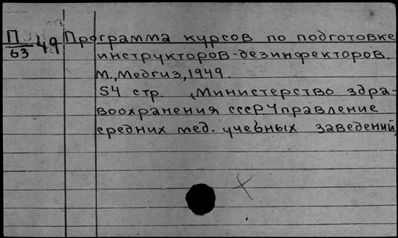 П/63 49 Программа курсов по подготовке
инструкторов-дезинфекторов.
М., Медгиз, 1949.
54 стр. , Министерство здра-
воохранения СССР Управление
средних мед. учебных заведений,